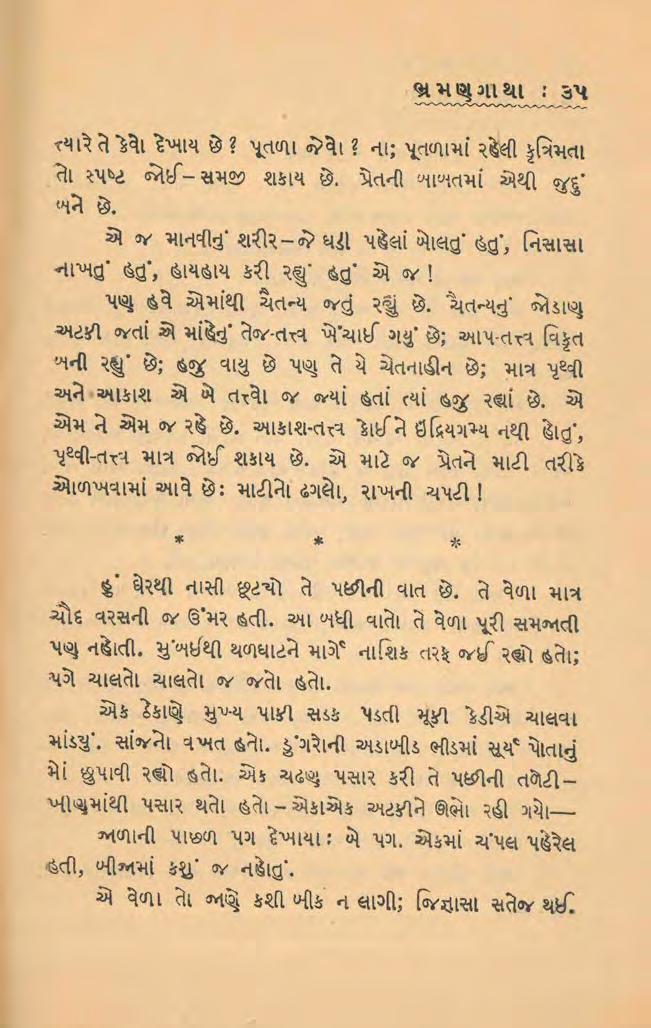 ભ્રમણગાથા : ૩૫
ત્યારે તે કેવો દેખાય છે? પૂતળા જેવો? ના; પૂતળામાં રહેલી કૃત્રિમતા
તો સ્પષ્ટ જોઈ–સમજી શકાય છે. પ્રેતની બાબતમાં એથી જુદું
બને છે.
એ જ માનવીનું શરીર–જે ઘડી પહેલાં બોલતું હતું, નિસાસા
નાખતું હતું, હાયહાય કરી રહ્યું હતું એ જ!
પણ હવે એમાંથી ચૈતન્ય જતું રહ્યું છે. ચૈતન્યનું જોડાણ
અટકી જતાં એ માંહેનું તેજ-તત્ત્વ ખેંચાઈ ગયું છે; આપ-તત્ત્વ વિકૃત
બની રહ્યું છે; હજુ વાયુ છે પણ તે યે ચેતનાહીન છે; માત્ર પૃથ્વી
અને આકાશ એ બે તત્ત્વો જ જ્યાં હતાં ત્યાં હજુ રહ્યાં છે. એ
એમ ને એમ જ રહે છે. આકાશ-તત્ત્વ કોઈને ઇંદ્રિયગમ્ય નથી હોતું,
પૃથ્વી-તત્ત્વ માત્ર જોઈ શકાય છે. એ માટે જ પ્રેતને માટી તરીકે
ઓળખવામાં આવે છેઃ માટીનો ઢગલો, રાખની ચપટી!
* * *
હું ઘેરથી નાસી છૂટ્યો તે પછીની વાત છે. તે વેળા માત્ર
ચૌદ વરસની જ ઉંમર હતી. આ બધી વાતો તે વેળા પૂરી સમજાતી
પણ નહોતી. મુંબઈથી થળઘાટને માર્ગે નાશિક તરફ જઈ રહ્યો હતો;
પગે ચાલતો ચાલતો જ જતો હતો.
એક ઠેકાણે મુખ્ય પાકી સડક પડતી મૂકી કેડીએ ચાલવા
માંડ્યું. સાંજનો વખત હતો. ડુંગરોની અડાબીડ ભીડમાં સૂર્ય પોતાનું
મોં છુપાવી રહ્યો હતો. એક ચઢણ પસાર કરી તે પછીની તળેટી–
ખીણમાંથી પસાર થતો હતો – એકાએક અટકીને ઊભો રહી ગયો—
જાળાની પાછળ પગ દેખાયા: બે પગ. એકમાં ચંપલ પહેરેલ
હતી, બીજામાં કશું જ નહોતું.
એ વેળા તો જાણે કશી બીક ન લાગી; જિજ્ઞાસા સતેજ થઈ.